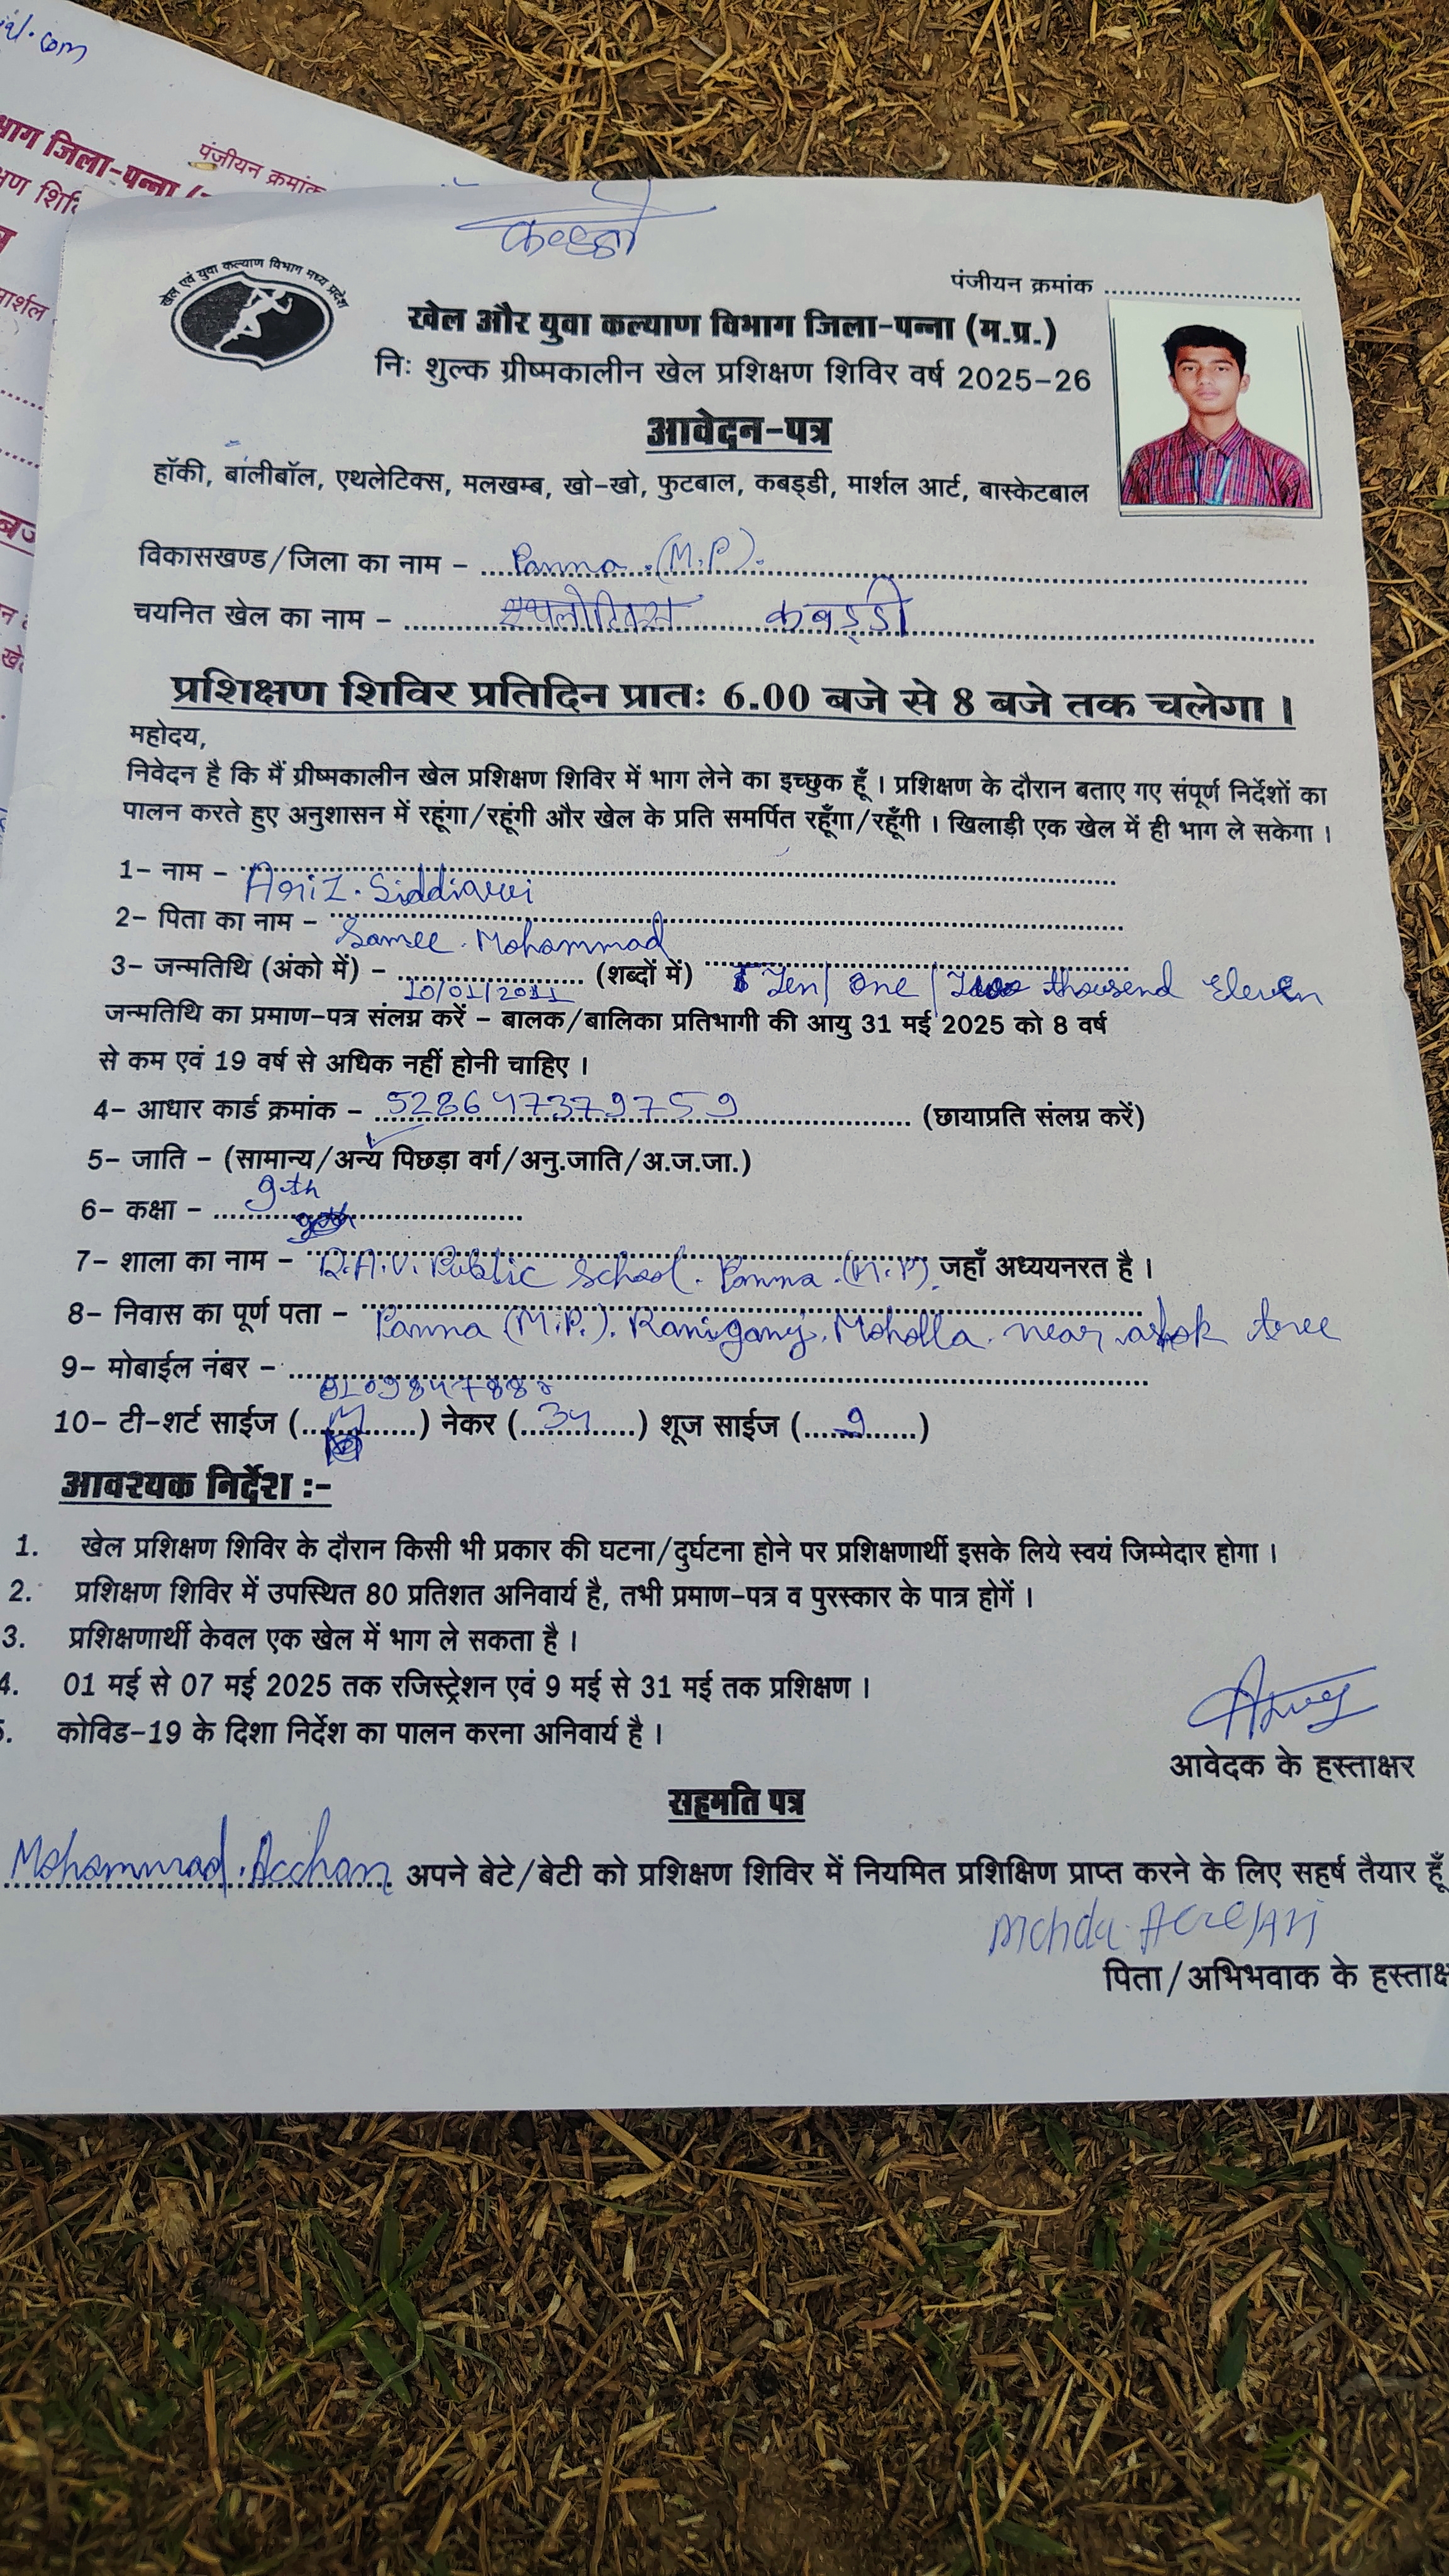 .com
भाग जिला-पन्ना
पंजीयन क्रमांक
मार्शल
खेल एवं युवा कल्याण विभाग मध्य प्रदेश
पंजीयन क्रमांक ........................
खेल और युवा कल्याण विभाग जिला-पन्ना (म.प्र.)
निः शुल्क ग्रीष्मकालीन खेल प्रशिक्षण शिविर वर्ष 2025-26
आवेदन-पत्र
हॉकी, बालीबॉल, एथलेटिक्स, मलखम्ब, खो-खो, फुटबाल, कबड्डी, मार्शल आर्ट, बास्केटबाल
विकासखण्ड/जिला का नाम - Panna (M.P).
चयनित खेल का नाम - कबड्डी
प्रशिक्षण शिविर प्रतिदिन प्रातः 6.00 बजे से 8 बजे तक चलेगा ।
महोदय,
निवेदन है कि मैं ग्रीष्मकालीन खेल प्रशिक्षण शिविर में भाग लेने का इच्छुक हूँ । प्रशिक्षण के दौरान बताए गए संपूर्ण निर्देशों का
पालन करते हुए अनुशासन में रहूंगा/रहूंगी और खेल के प्रति समर्पित रहूँगा/रहूँगी । खिलाड़ी एक खेल में ही भाग ले सकेगा ।
1- नाम - Ariz. Siddiqui
2- पिता का नाम - Samee. Mohammad
3- जन्मतिथि (अंको में) - 10/01/2011 (शब्दों में) Ten/ one / Two thousend Eleven
जन्मतिथि का प्रमाण-पत्र संलग्न करें - बालक/बालिका प्रतिभागी की आयु 31 मई 2025 को 8 वर्ष
से कम एवं 19 वर्ष से अधिक नहीं होनी चाहिए ।
4- आधार कार्ड क्रमांक - 528647379759 (छायाप्रति संलग्न करें)
5- जाति - (सामान्य/अन्य पिछड़ा वर्ग/अनु.जाति/अ.ज.जा.)
6- कक्षा - 9th
7- शाला का नाम - D.A.V. Public School. Panna. (M.P). जहाँ अध्ययनरत है ।
8- निवास का पूर्ण पता - Panna (M.P.). Raniganj. Moholla. near ashok tree
9- मोबाईल नंबर -
10- टी-शर्ट साईज (M) नेकर (34) शूज साईज (9)
आवश्यक निर्देश :-
1. खेल प्रशिक्षण शिविर के दौरान किसी भी प्रकार की घटना/दुर्घटना होने पर प्रशिक्षणार्थी इसके लिये स्वयं जिम्मेदार होगा ।
2. प्रशिक्षण शिविर में उपस्थित 80 प्रतिशत अनिवार्य है, तभी प्रमाण-पत्र व पुरस्कार के पात्र होगें ।
3. प्रशिक्षणार्थी केवल एक खेल में भाग ले सकता है ।
4. 01 मई से 07 मई 2025 तक रजिस्ट्रेशन एवं 9 मई से 31 मई तक प्रशिक्षण ।
5. कोविड-19 के दिशा निर्देश का पालन करना अनिवार्य है ।
आवेदक के हस्ताक्षर
सहमति पत्र
Mohammad. Acchan अपने बेटे/बेटी को प्रशिक्षण शिविर में नियमित प्रशिक्षिण प्राप्त करने के लिए सहर्ष तैयार हूँ
पिता/अभिभवाक के हस्ताक्ष